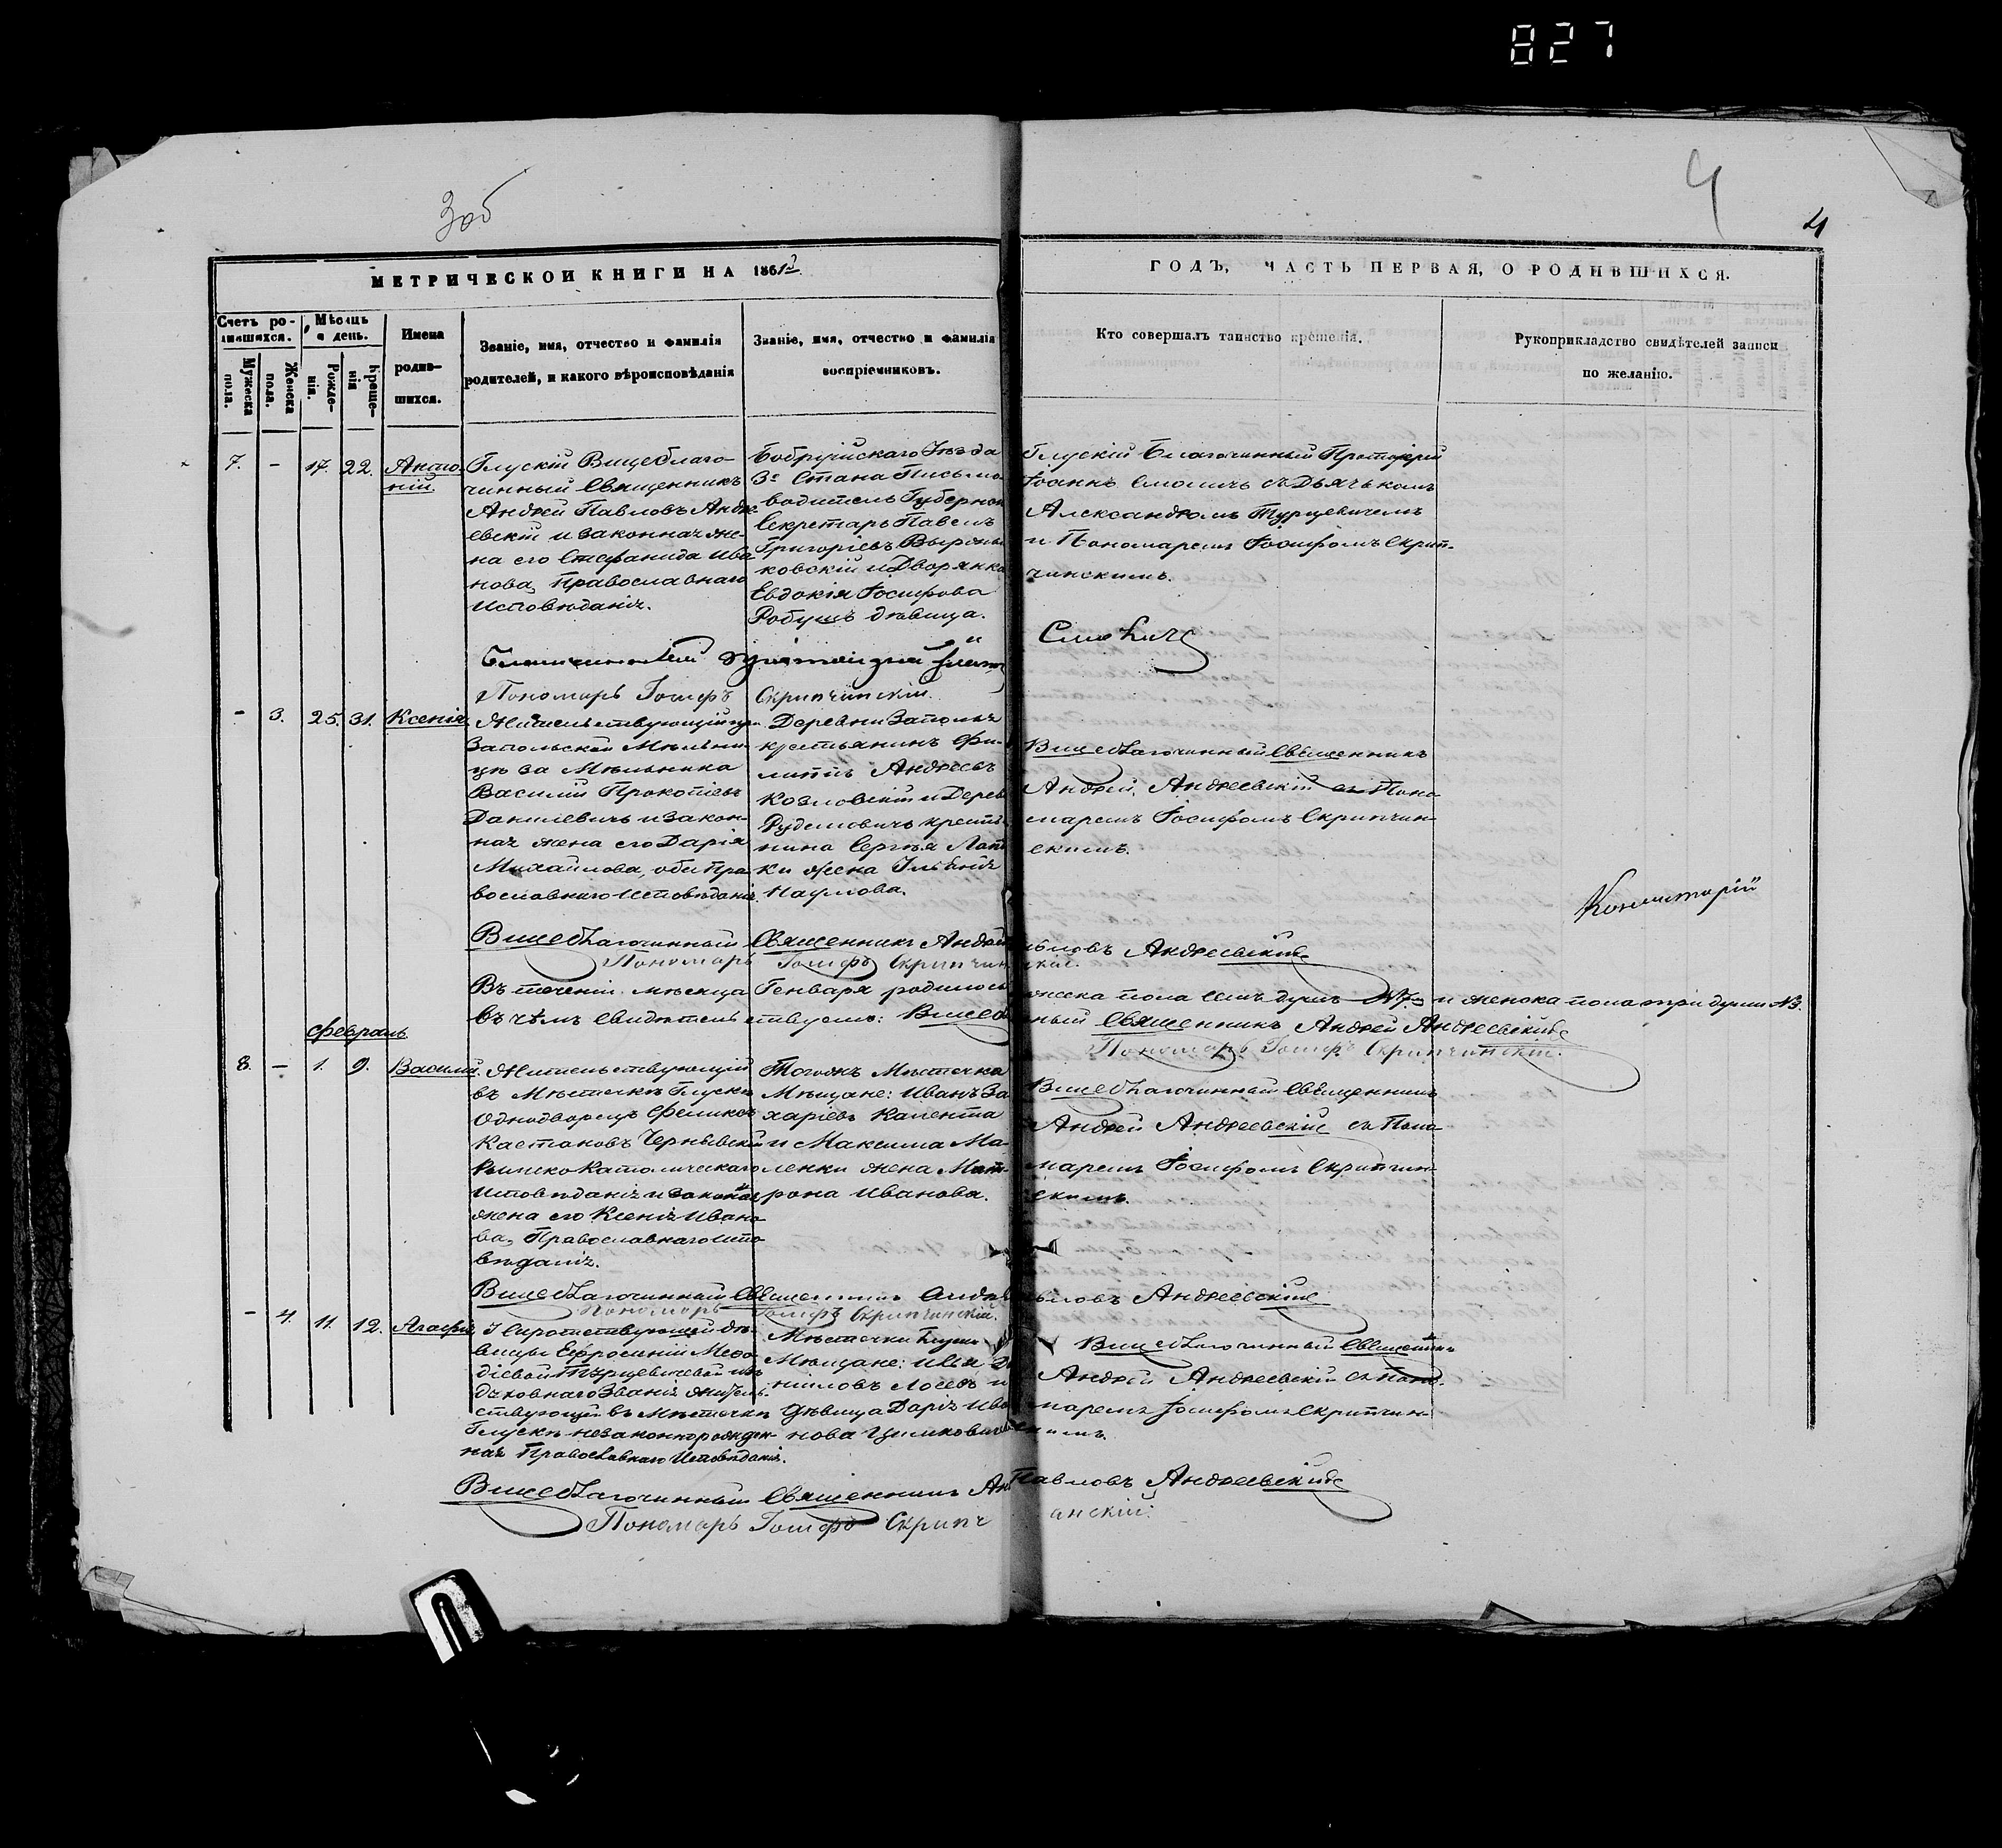 827
3об
4
4
МЕТРИЧЕСКОЙ КНИГИ НА 1861й
ГОДЪ, ЧАСТЬ ПЕРВАЯ, О РОДИВШИХСЯ.
Счетъ ро-
дившихся.
Мѣсяцъ
и день.
Мужеска
пола.
Женска
пола.
Рожде-
нія.
Креще-
нія
Имена
родив-
шихся.
Званіе, имя, отчество и фамилія
родителей, и какого вѣроисповѣданія
Званіе, имя, отчество и фамилія
воспріемниковъ.
Кто совершалъ таинство крещенія.
Рукоприкладство свидѣтелей записи
по желанію.
7. - 17. 22.
Глускій Вицеблаго-
чинный Священникъ
Андрей Павловъ Андре
евскій и законная же-
на его Стефанида Ива
нова, Православнаго
Исповѣданія.
Бобруйскаго Уѣзда
3го Стана Письмо
водитель Губернск
Секретарь Павелъ
Григорьевъ
ковскій и Дворянка
Евдокія Іосифова
Робушъ дѣвица.
Глускій Благочинный Протоіерей
Іоаннъ Смоличъ съ Дьячькомъ
Александромъ Турцевичемъ
и Пономаремъ Іосифомъ Скрип-
чинскимъ.
Смоличъ
Пономарь Іосифъ Скрипчинскій.
- 3. 25. 31. Ксенія
Жительствующій при
Запольской Мельни-
цѣ за Мельника
Василій Прокопіевъ
Даниевичъ и закон-
ная жена его Дарія
Михайлова, оба Пра
вославнаго Исповѣданія.
Деревни Заполья
крестьянинъ Фи-
липпъ Андреевъ
Козловскій и Дерев
Рудемовичъ крестья
нина Сергѣя Лап
ки жена Ульянія
Наумова.
Вицеблагочинный Священникъ
Андрей Андреевскій съ Поно-
маремъ Іосифомъ Скрипчин-
скимъ.
Консисторій
Вицеблагочинный Священникъ Андрей Павловъ Андреевскій
Пономарь Іосифъ Скрипчинскій.
Въ теченіи мѣсяца Генваря родилось
жеска пола семь душъ №7 и женска пола три души №3.
въ чѣмъ свидѣтельствуемъ: Вицеб
ный Священникъ Андрей Андреевскій
Пономарь Іосифъ Скрипчинскій.
Февраль
8. - 1. 9. Василій.
Жительствующій
въ Мѣстечкѣ Глускѣ
Однодворецъ Феликсъ
Каетановъ Чернявскій
Римско Католическаго
Исповѣданія и законная
жена его Ксенія Ивано
ва, Православнаго Испо
вѣданія.
Тогожъ Мѣстечка
Мѣщане: Иванъ За
харіевъ Калента
и Максима Ма-
ленки жена Мат-
рона Иванова.
Вицеблагочинный Священникъ
Андрей Андреевскій съ Поно-
маремъ Іосифомъ Скрипчин-
скимъ.
Вицеблагочинный Священникъ Андрей Павловъ Андреевскій
Пономарь Іосифъ Скрипчинскій.
- 4. 11. 12. Агафія
дѣ-
вицы Ефросиніи Мефо
діевой Турцевичевой изъ
духовнаго Званія житель-
ствующей въ Мѣстечкѣ
Глускѣ незаконнорожден-
ная Православнаго Исповѣданія.
Мѣстечка Глуска
Мѣщане: Илья Да
ніиловъ Лосевъ и
Дѣвица Дарія Ива
нова
Вицеблагочинный Священникъ
Андрей Андреевскій съ Поно-
маремъ Іосифомъ Скрипчин-
скимъ.
Вицеблагочинный Священникъ Андрей Павловъ Андреевскій
Пономарь Іосифъ Скрипчинскій.